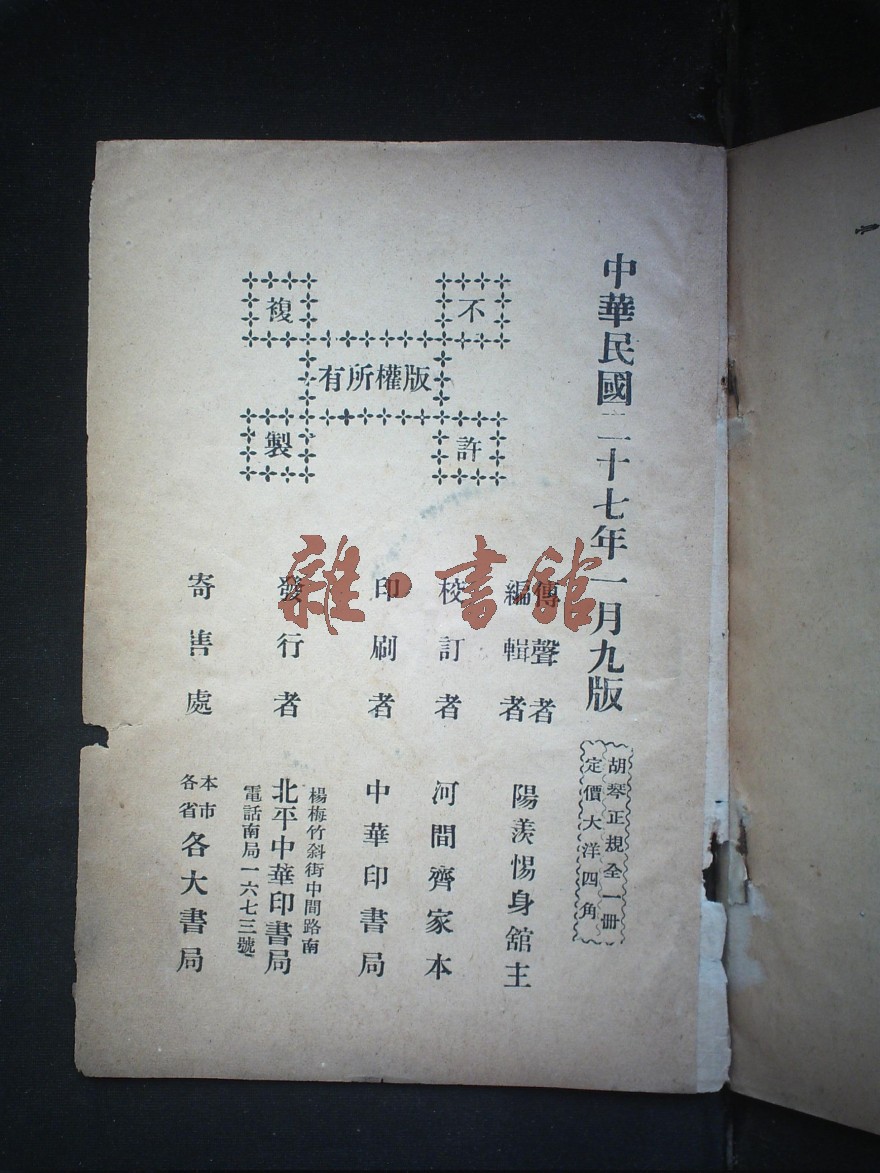 中華民國二十七年一月九版
胡琴正規全一冊
定價大洋四角
不許
版權所有
複製
傳聲者
編輯者
陽羨惕身舘主
校訂者
河間齊家本
印刷者
中華印書局
發行者
楊梅竹斜街中間路南
北平中華印書局
電話南局一六七三號
寄售處
本市
各省
各大書局
雜·書舘